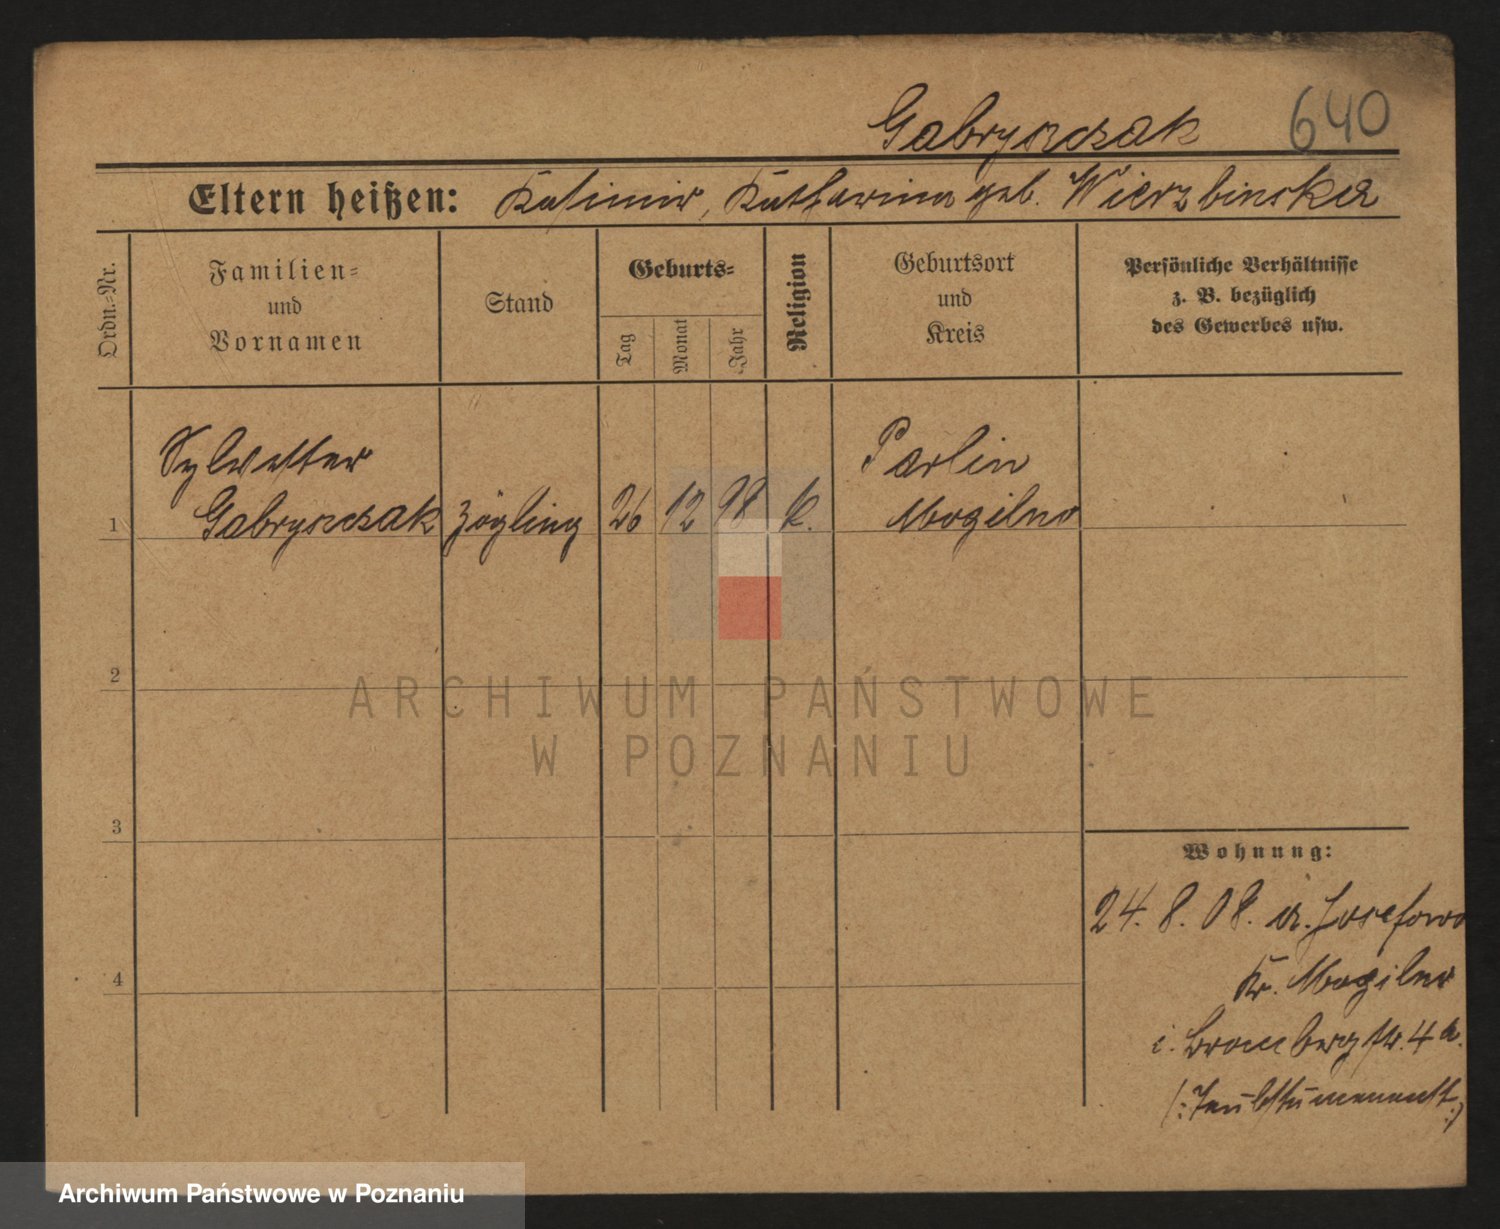 Gabryszczak 640
Eltern heißen: Kasimir, Katharina geb. Wierzbinska
Ordn.-Nr.
Familien-
und
Vornamen
Stand
Geburts-
Tag
Monat
Jahr
Religion
Geburtsort
und
Kreis
Persönliche Verhältnisse
z. B. bezüglich
des Gewerbes usw.
Sylvester Parlin
1 Gabryszczak Zögling 26 12 98 k. Mogilno
2
ARCHIWUM PAŃSTWOWE
W POZNANIU
3
Wohnung:
24. 8. 08. a. Josefowo
4
Kr. Mogilno
i. Brombergstr. 4a.
(: Taubstummenanst. :)
Archiwum Państwowe w Poznaniu